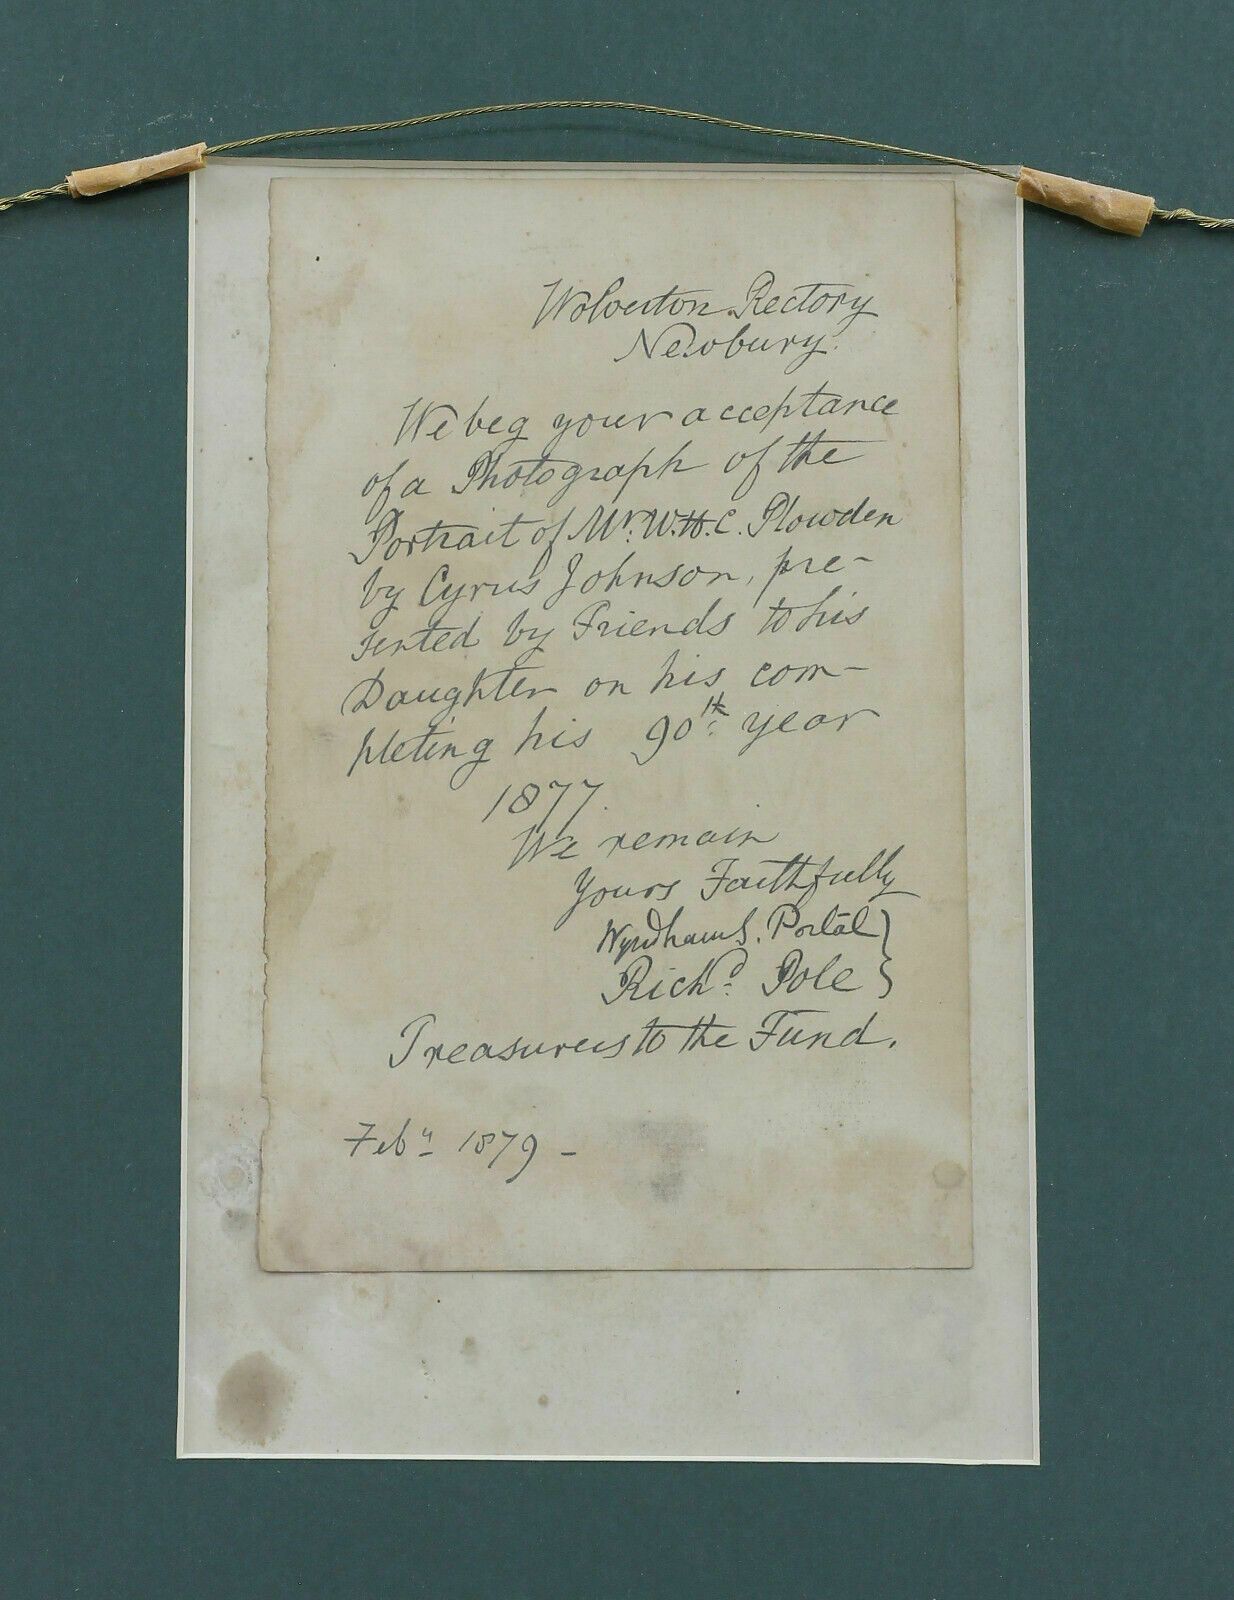 Wolverton Rectory
Newbury.
We beg your acceptance
of a Photograph of the
Portrait of Mr. W.H.C. Plowden
by Cyrus Johnson, pre-
sented by Friends to his
Daughter on his com-
pleting his 90th. year
1877.
We remain
Yours Faithfully
Wyndham S. Portal
Richd. Pole
Treasurers to the Fund.
Feby 1879 -